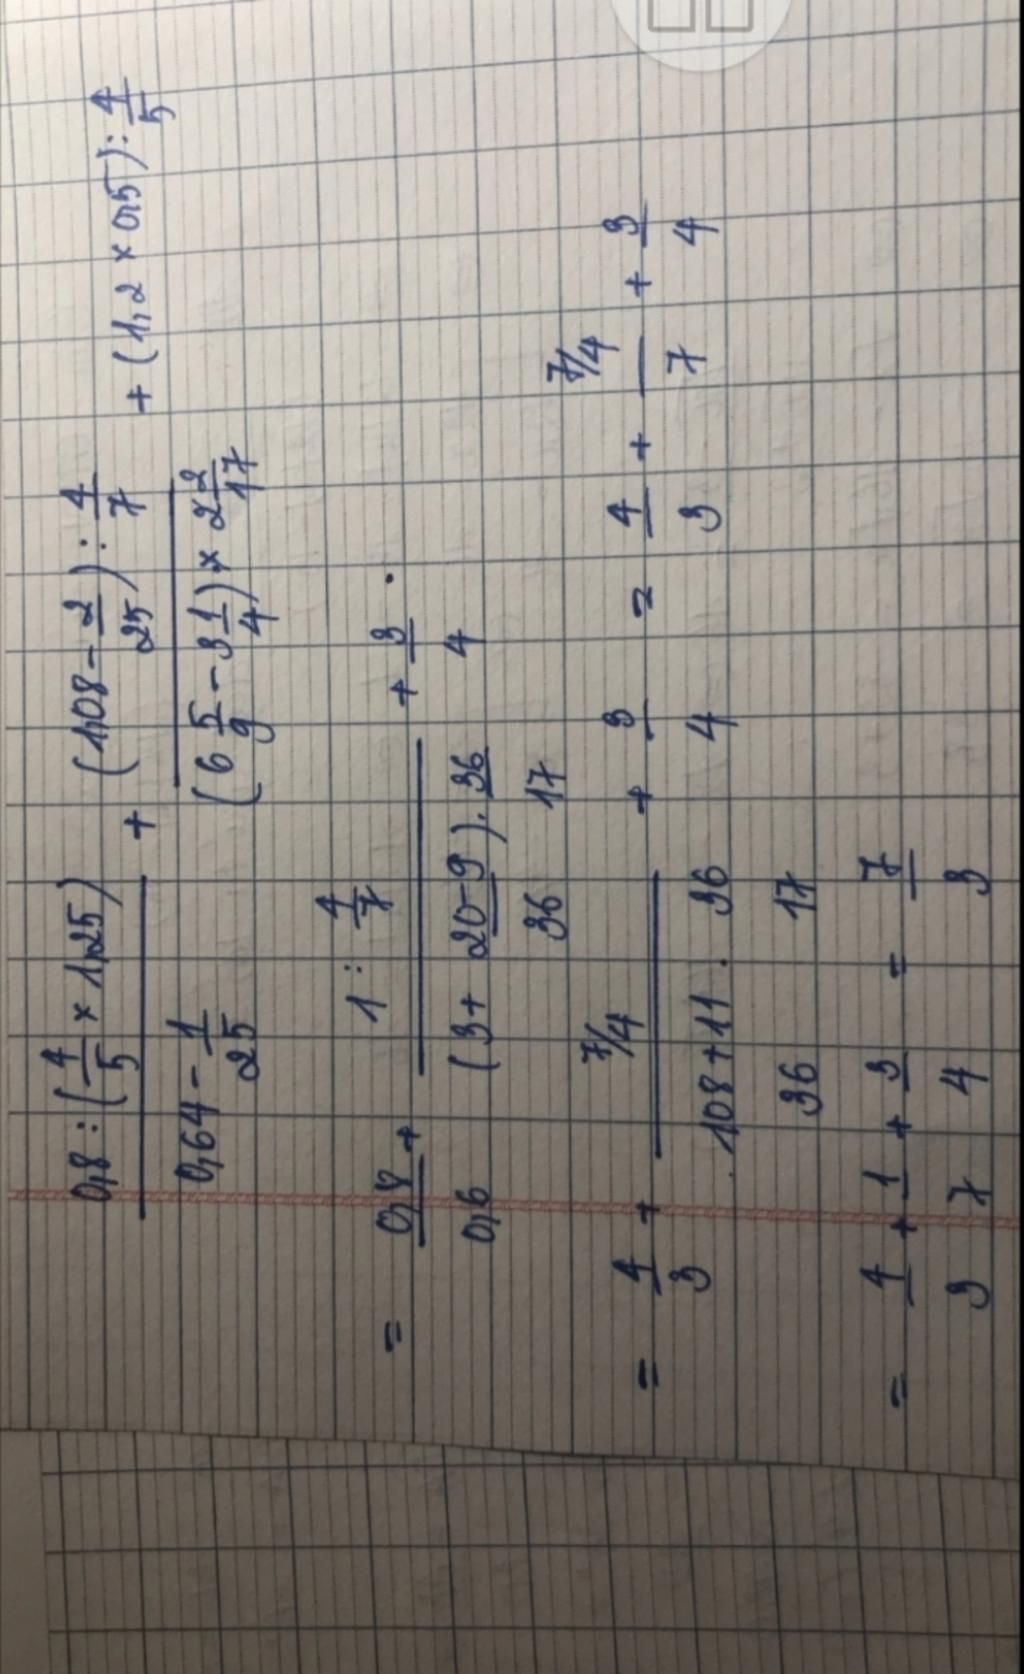 0,8 : (4/5 × 1,25) / (0,64 - 1/25) + (1,08 - 2/25) : 4/7 / ((6 5/9 - 3 1/4) × 2 2/17) + (1,2 × 0,5) : 4/5
= 0,8/0,6 + 1 : 4/7 / ((3 + 20-9/36) . 36/17) + 3/4 .
= 4/3 + 7/4 / (108+11/36 . 36/17) + 3/4 = 4/3 + 7/4 / 7 + 3/4
= 4/3 + 1/7 + 3/4 = 7/3